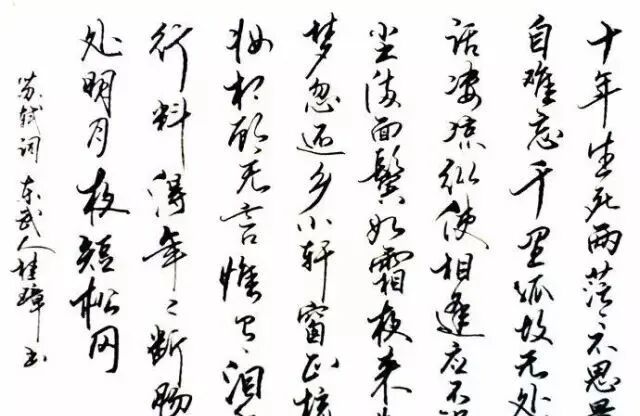 十年生死两茫不思
自难忘千里孤坟无处
话凄凉纵使相逢应不
尘满面鬓如霜夜来
梦忽还乡小轩窗正梳
妆相顾无言惟有泪
行料得年々断肠
处明月夜短松冈
苏轼词 东武人桂璋书